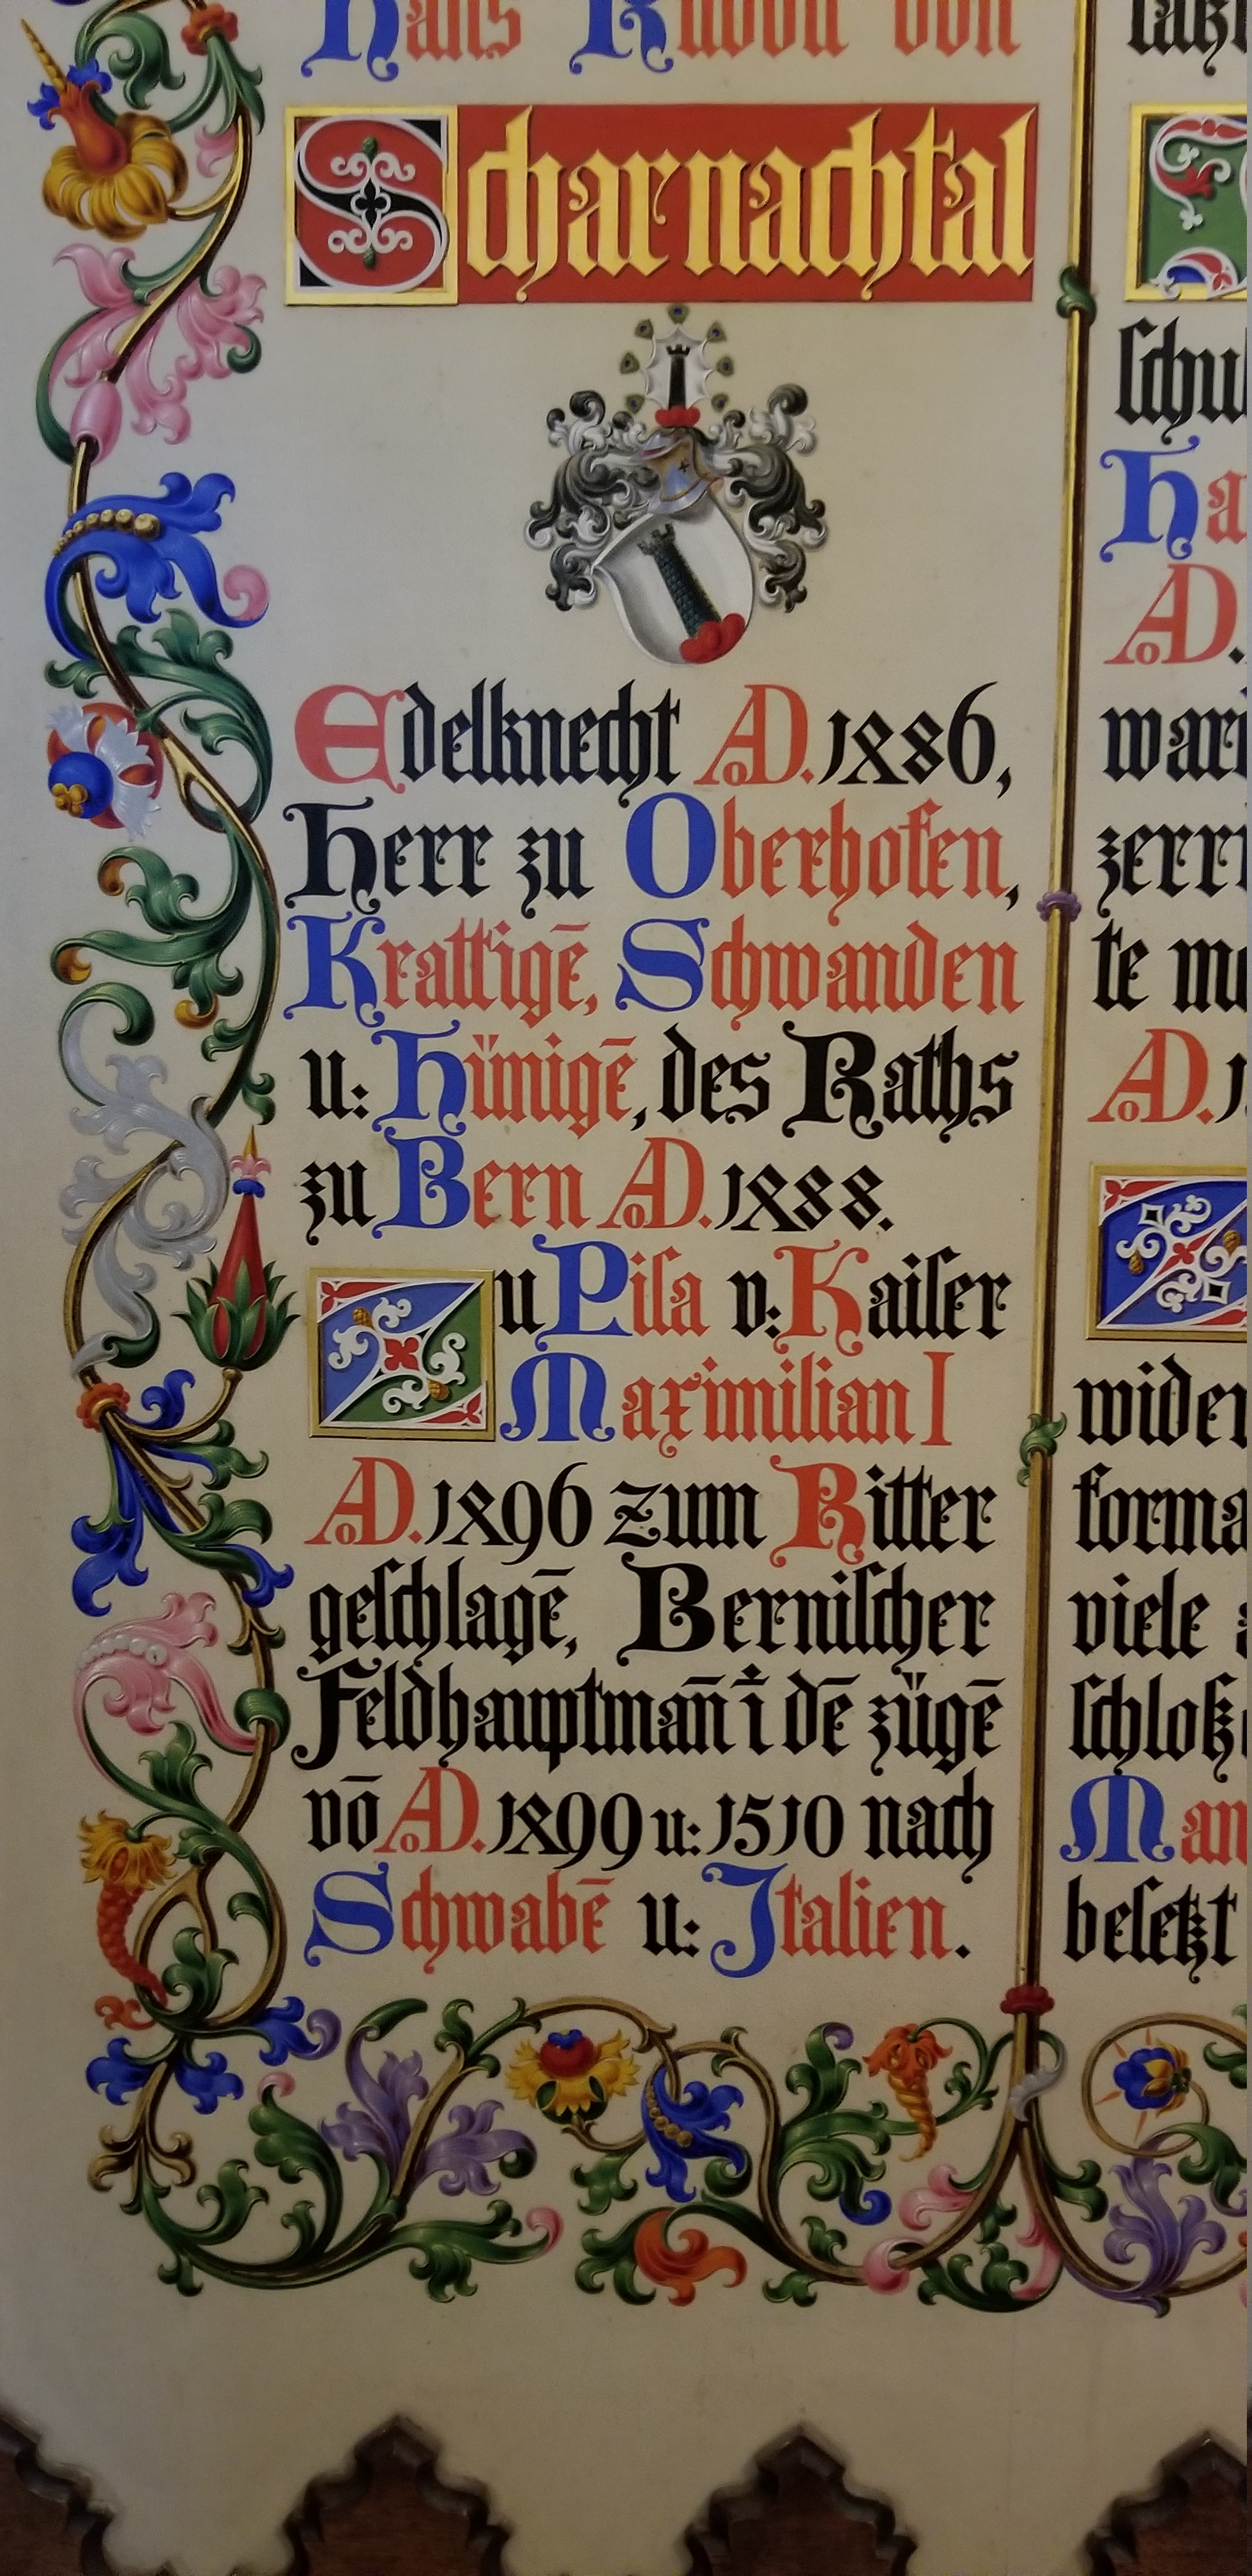 Hans Rudolf von
Scharnachtal
Edelknecht AoD. 1486,
Herr zu Oberhofen,
Krattigē, Schwanden
u: Hünigē, des Raths
zu Bern AoD. 1488.
Zu Piſa v: Kaiſer
Maximilian I
AoD. 1496 zum Ritter
geſchlagē, Berniſcher
Feldhauptman̄ ī dē zügē
vō AoD. 1499 u: 1510 nach
Schwabē u: Italien.
ſchu
Ha
AoD.
wari
zerr
te m
AoD. 1
wider
forma
viele
ſchloß
Man
beſetzt